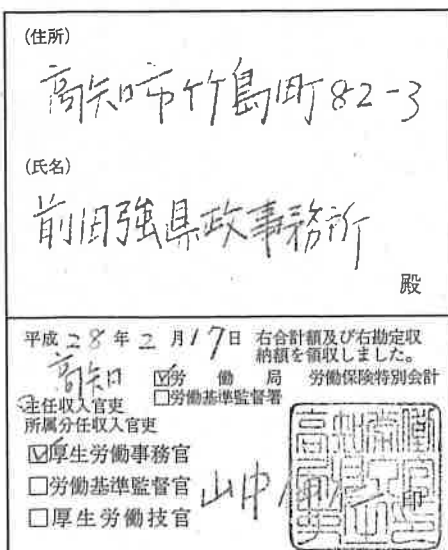 (住所)
高知市竹島町82-3
(氏名)
前田強県政事務所
殿
平成28年2月17日 右合計額及び右勘定収
納額を領収しました。
高知 ☑労働局 労働保険特別会計
□労働基準監督署
主任収入官吏
所属分任収入官吏
☑厚生労働事務官
□労働基準監督官
□厚生労働技官
山中
印